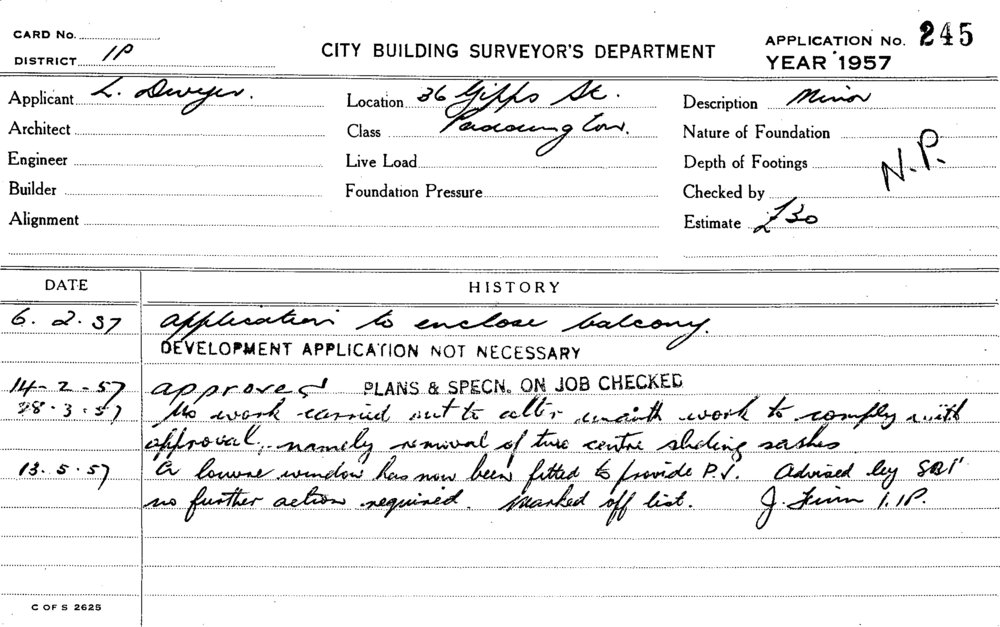 CARD No.
DISTRICT 1P
CITY BUILDING SURVEYOR'S DEPARTMENT
APPLICATION No. 245
YEAR 1957
Applicant L. Dwyer.
Location 36 Gipps St.
Description Minor
Architect
Class Paddington.
Nature of Foundation
Engineer
Live Load
Depth of Footings
N.P.
Builder
Foundation Pressure
Checked by
Alignment
Estimate £30
DATE
HISTORY
6. 2. 57 application to enclose balcony.
DEVELOPMENT APPLICATION NOT NECESSARY
14-2-57 approved PLANS & SPECN. ON JOB CHECKED
28.3.57 No work carried out to alter work to comply with
approval, namely removal of two centre sliding sashes
13.5.57 A louvre window has now been fitted to provide P.V. Advised by
no further action required. Marked off list. J. 1.1P.
C OF S 2625